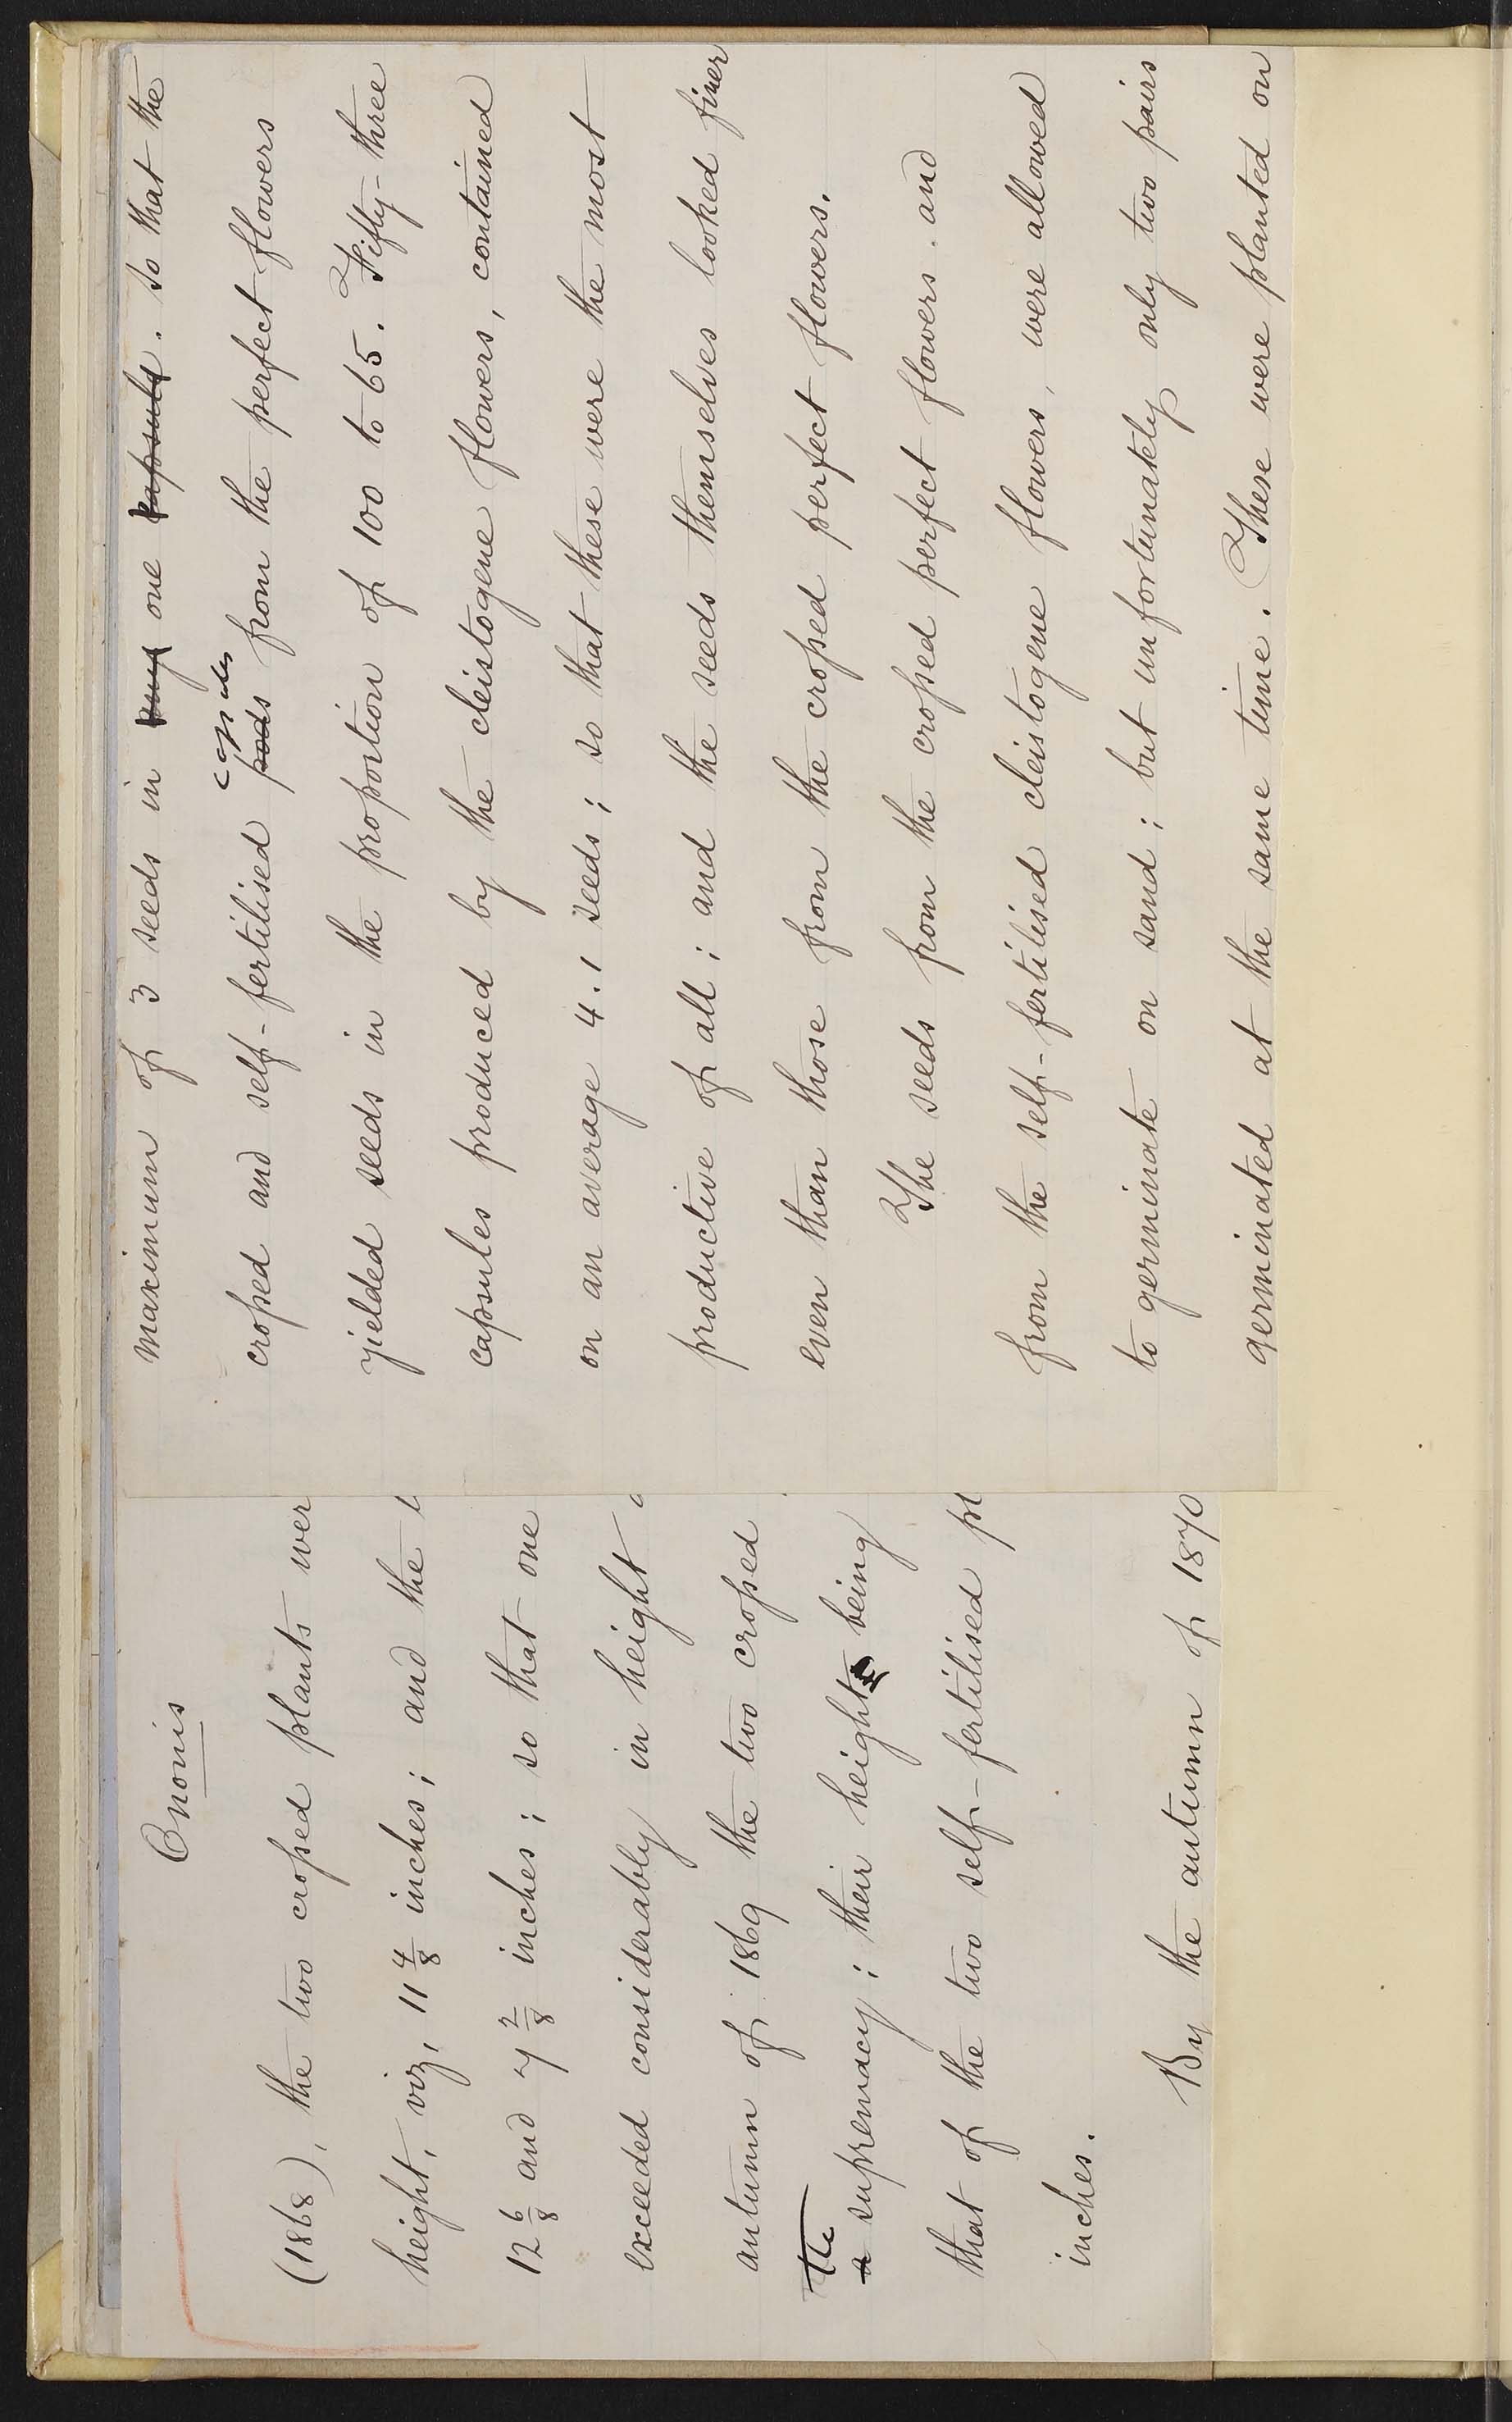 Ononis
(1868), the two crossed plants wer
height, viz, 11 4/8 inches; and the
12 6/8 and 7 2/8 inches; so that one
exceeded considerably in height
autumn of 1869 the two crossed
the
a supremacy; their height being
that of the two self-fertilised pl
inches.
By the autumn of 1870
maximum of 3 seeds in any one capsule. so that the
capsules
crossed and self-fertilised pods from the perfect flowers
yielded seeds in the proportion of 100 to 65. Fifty-three
capsules produced by the cleistogene flowers, contained
on an average 4.1 seeds; so that these were the most
productive of all; and the seeds themselves looked finer
even than those from the crossed perfect flowers.
The seeds from the crossed perfect flowers. and
from the self-fertilised cleistogene flowers, were allowed
to germinate on sand; but unfortunately only two pairs
germinated at the same time. These were planted on